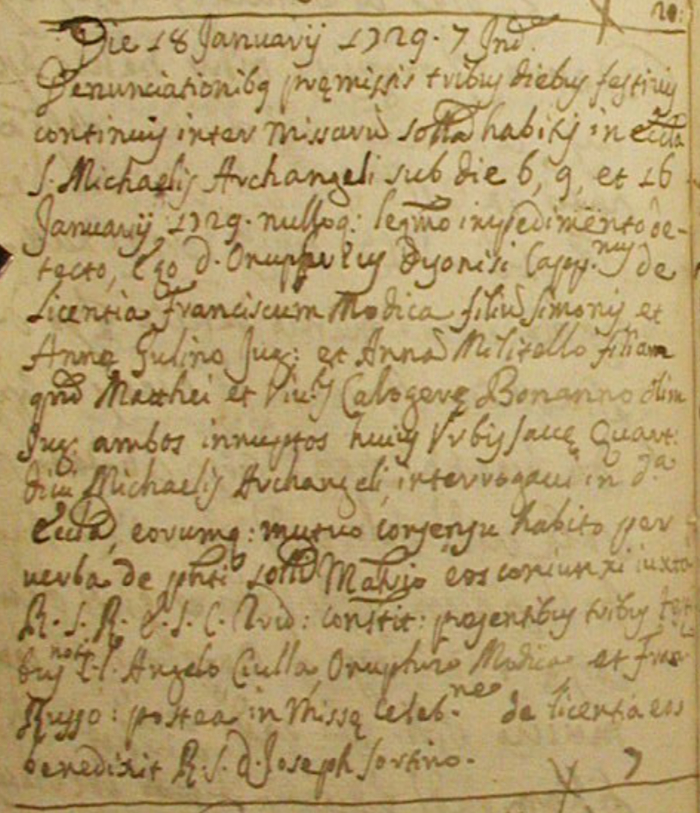 20:
Die 18 Januarij 1729. 7 Ind.
Denunciationibq pręmissis tribus diebus festivis
continuis inter Missarũ sollã habitis in eccla
S. Michaelis Archangeli sub die 6, 9, et 16
Januarij 1729. nulloq: legmo impedimento de-
tecto, Ego d. Onuphrius Dyonisi Capp.nus de
Licentia Franciscum Modica filiũ Simonis et
Annę Gulino Jug: et Annã Militello filiam
qnd Matthei et Viuis Calogerę Bonanno olim
Jug: ambos innuptos huius Vrbis Saccę Quart:
diui Michaelis Archangeli, interrogaui in d.a
Eccla, eorumq: mutuo consensu habito per
verba de pnti sollr Mãtrio eos coniunxi iuxta
R. S. R. E. S. C. Trid: constit: presentibus tribus tes
bus notis Angelo Ciulla, Onuphrio Modica et
Russo: postea in Missę Celeb.ne de licentia eos
benedixit R. S. d. Joseph Sortino.